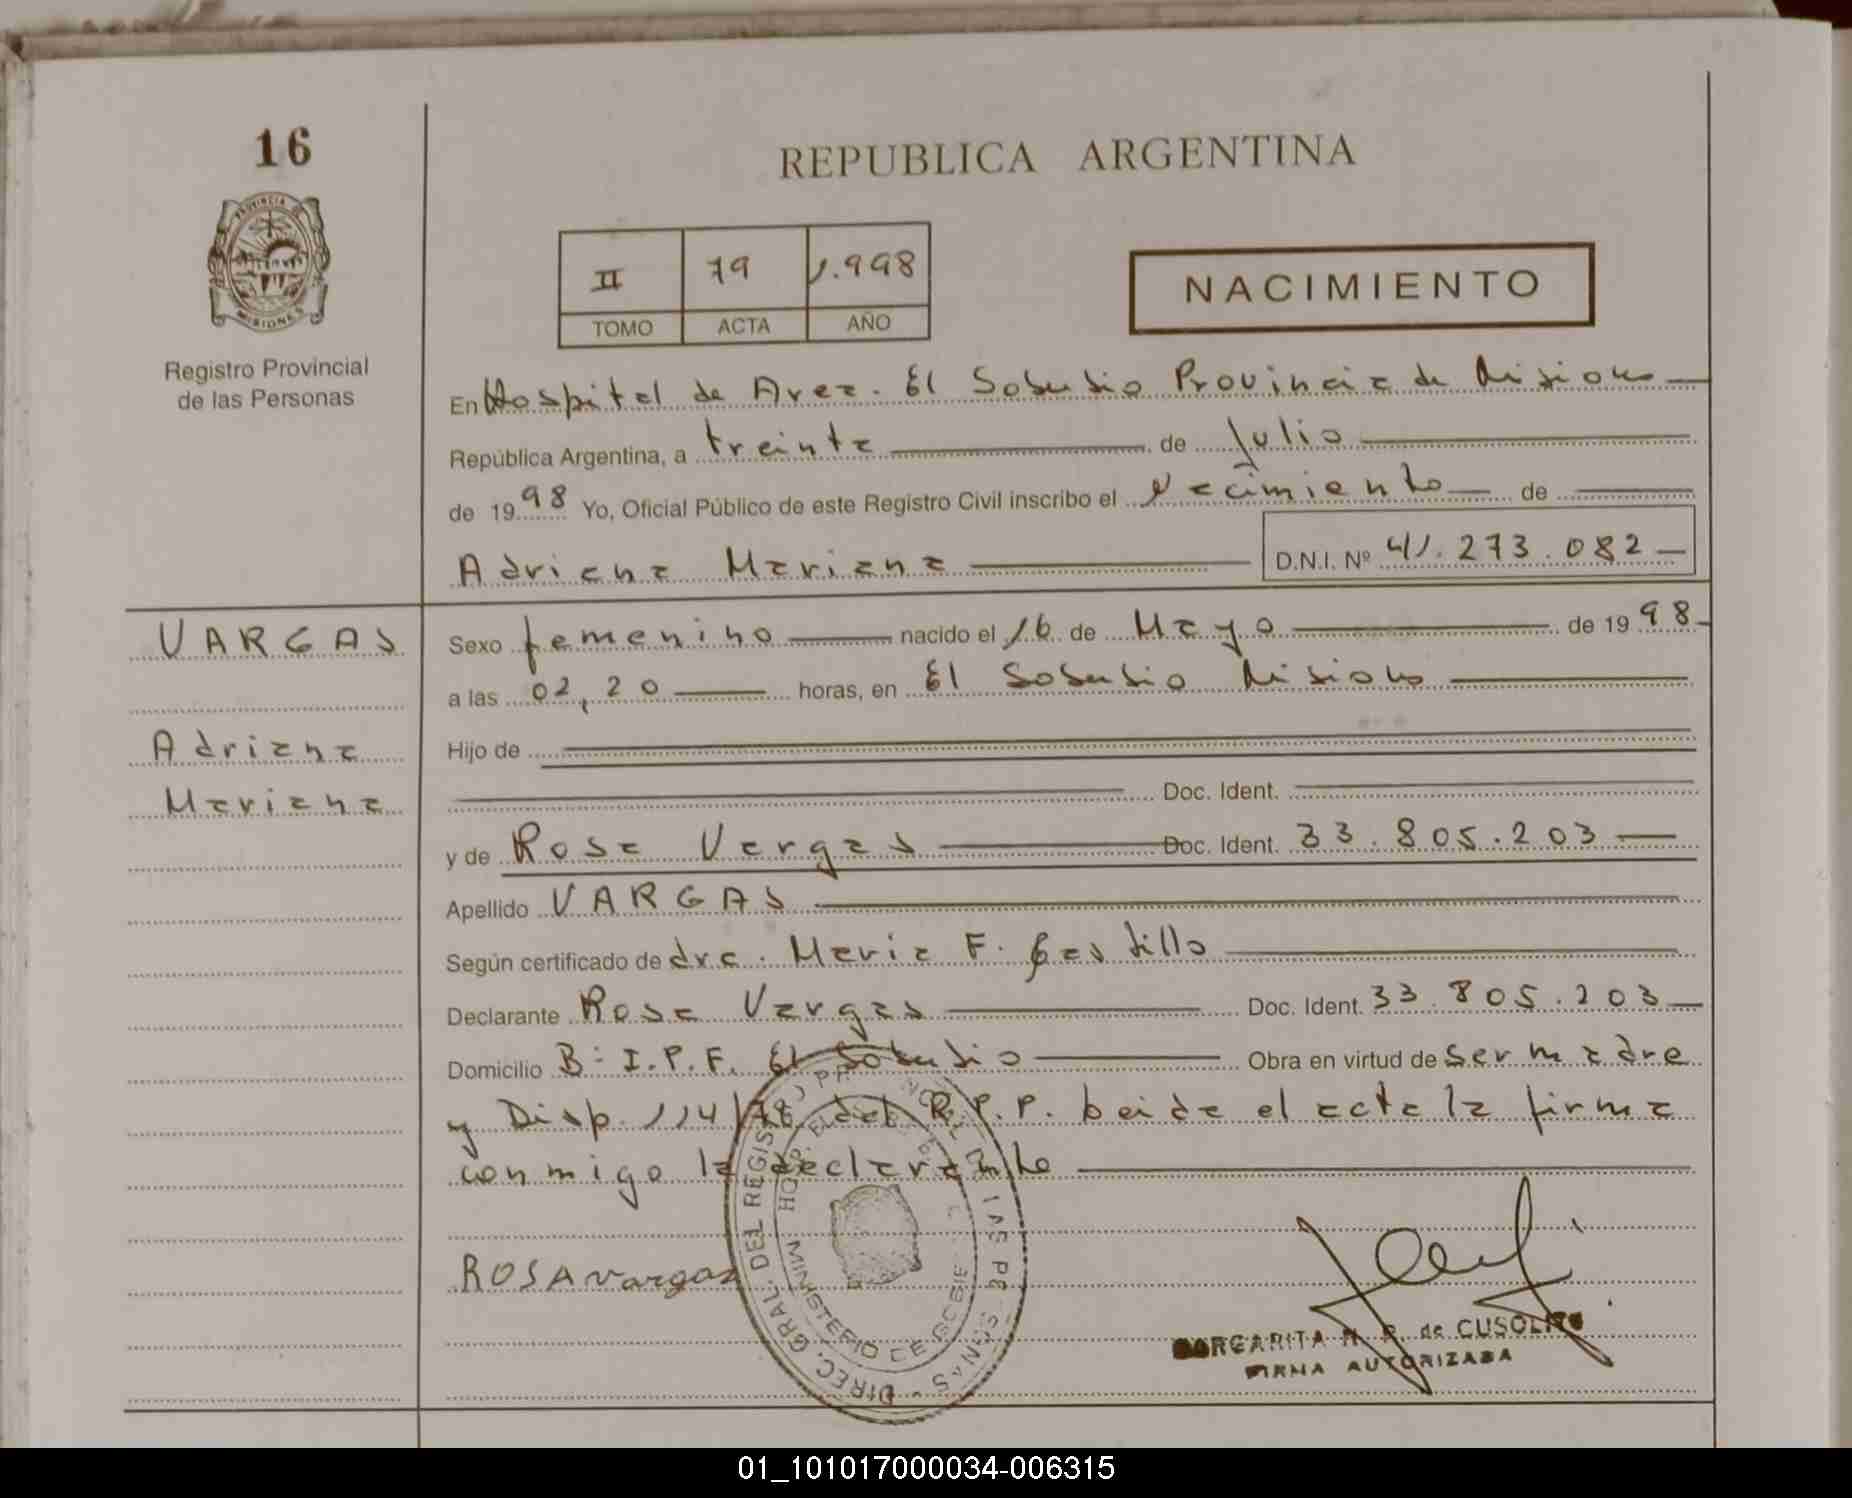 16
REPUBLICA ARGENTINA
PROVINCIA DE
MISIONES
Registro Provincial
de las Personas
II 79 1.998
TOMO ACTA AÑO
NACIMIENTO
En Hospital de Area. El Soberbio Provincia de Misiones
República Argentina, a treinta de Julio
de 1998 Yo, Oficial Público de este Registro Civil inscribo el Nacimiento de
Adriana Mariana D.N.I. Nº 41.273.082
VARGAS
Adriana
Mariana
Sexo femenino nacido el 16 de Mayo de 1998
a las 02,20 horas, en El Soberbio Misiones
Hijo de
Doc. Ident.
y de Rosa Vargas Doc. Ident. 33.805.203
Apellido VARGAS
Según certificado de dra. Maria F. Castillo
Declarante Rosa Vargas Doc. Ident. 33.805.203
Domicilio B: I.P.F. El Soberbio Obra en virtud de ser madre
y Disp. 114/78 del R.P.P. leida el acta la firma
conmigo la declarante
ROSA vargas
DIREC. GRAL. DEL REGIS
MINISTERIO DE
MARGARITA de CUSOLITO
FIRMA AUTORIZADA
01_101017000034-006315